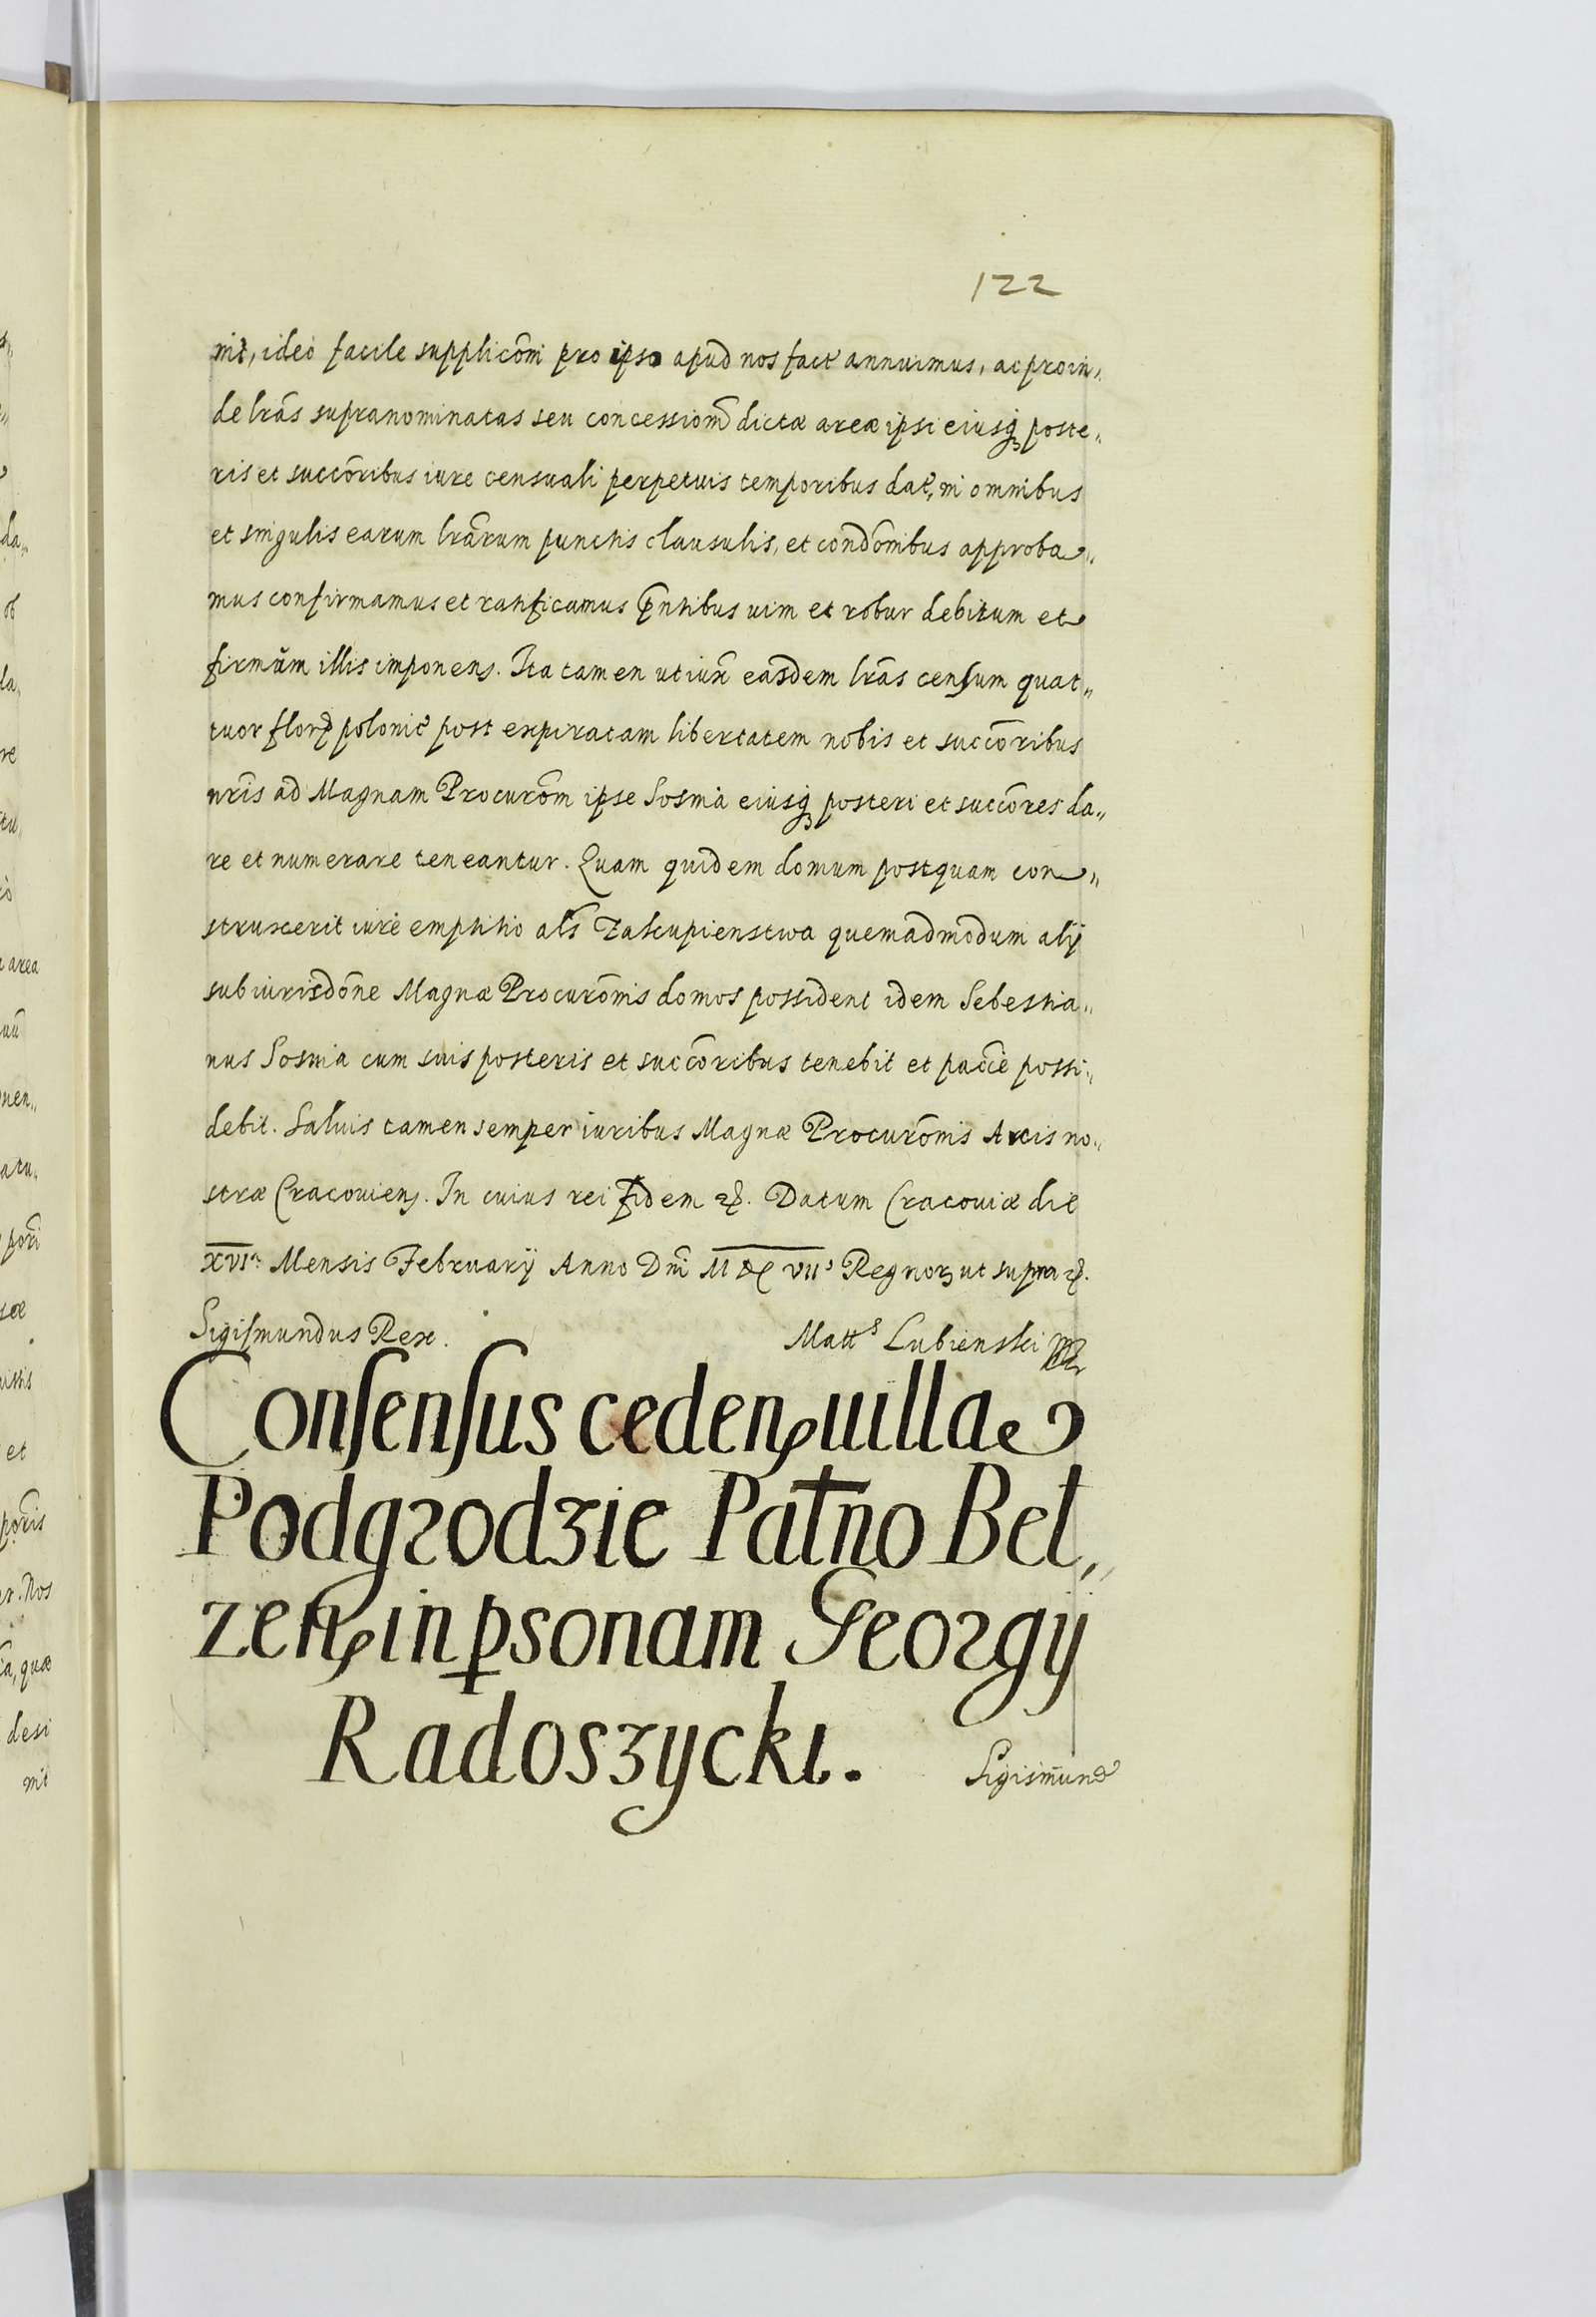 122
nit, ideo facile supplicõni pro ipso apud nos factę annuimus, ac proin„
de lrãs supranominatas seu concessionẽ dictæ areæ ipsi eiusq; poste„
ris et succõribus iure censuali perpetuis temporibus datę, in omnibus
et singulis earum lrãrum punctis clausulis, et condõnibus approba„
mus confirmamus et ratificamus p̃ntibus uim et robur debitum et
firmũm illis imponens. Ita tamen ut iux̃ easdem lrãs censum quat„
tuor flor polonic post expiratam libertatem nobis et succõribus
nr̃is ad Magnam Procurõm ipse Sosnia eiusq; posteri et succõres da„
re et numerare teneantur. Quam quidem domum postquam con„
struxerit iure emptitio al̃s Zakupienstwa quemadmodum alÿ
sub iurisdõne Magnæ Procurõnis domos possident idem Sebestia„
nus Sosnia cum suis posteris et succõribus tenebit et pacẽ possi„
debit. Saluis tamen semper iuribus Magnæ Procurõnis Arcis no„
stræ Cracouieñ. In cuius rei fidem &. Datum Cracouiæ die
XVIa Mensis Februarÿ Anno Dnĩ MDCVIIo Regnor; ut supra &.
Sigismundus Rex. Matts Lubienski
Consensus ceden uillae
Podgrodzie Pat̃no Bel„
zen in psonam Georgÿ
Radoszycki.
Sigismund